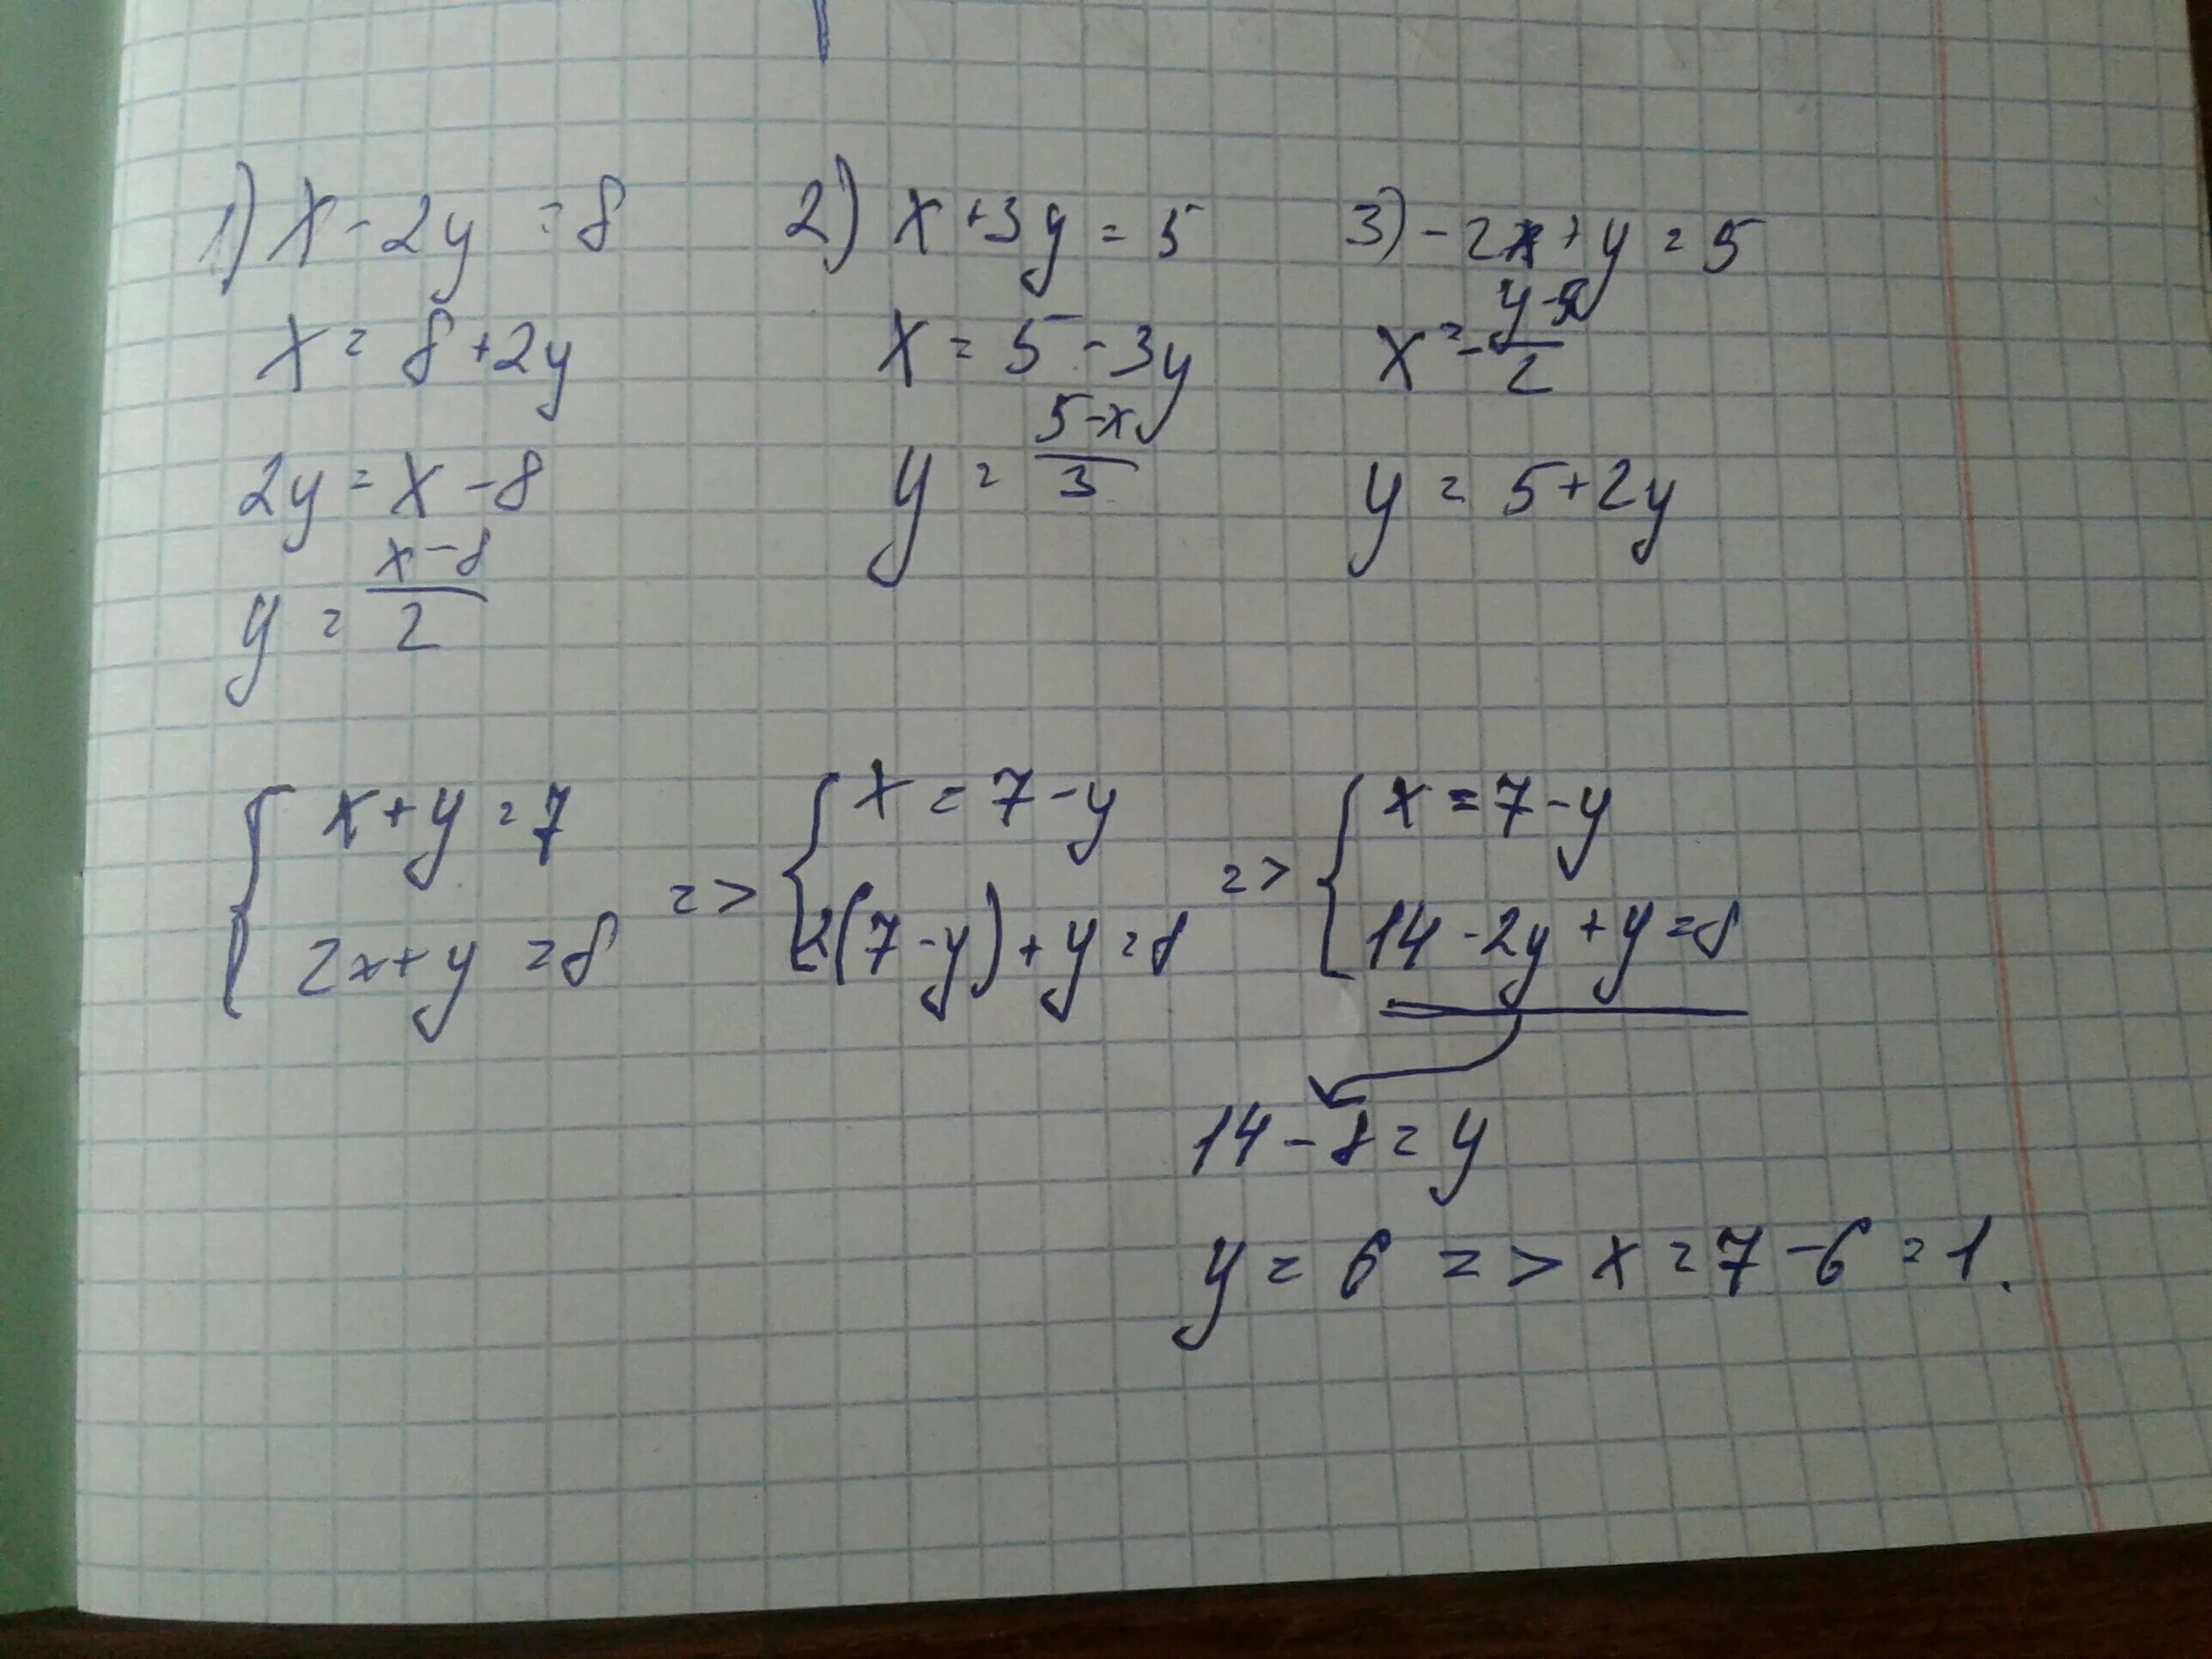 1) x - 2y = 8
x = 8 + 2y
2y = x - 8
y = (x - 8)/2
2) x + 3y = 5
x = 5 - 3y
y = (5 - x)/3
3) -2x + y = 5
y = 5 + 2y
{ x + y = 7
2x + y = 8
=> { x = 7 - y
2(7 - y) + y = 8
=> { x = 7 - y
14 - 2y + y = 8
14 - 8 = y
y = 6 => x = 7 - 6 = 1.